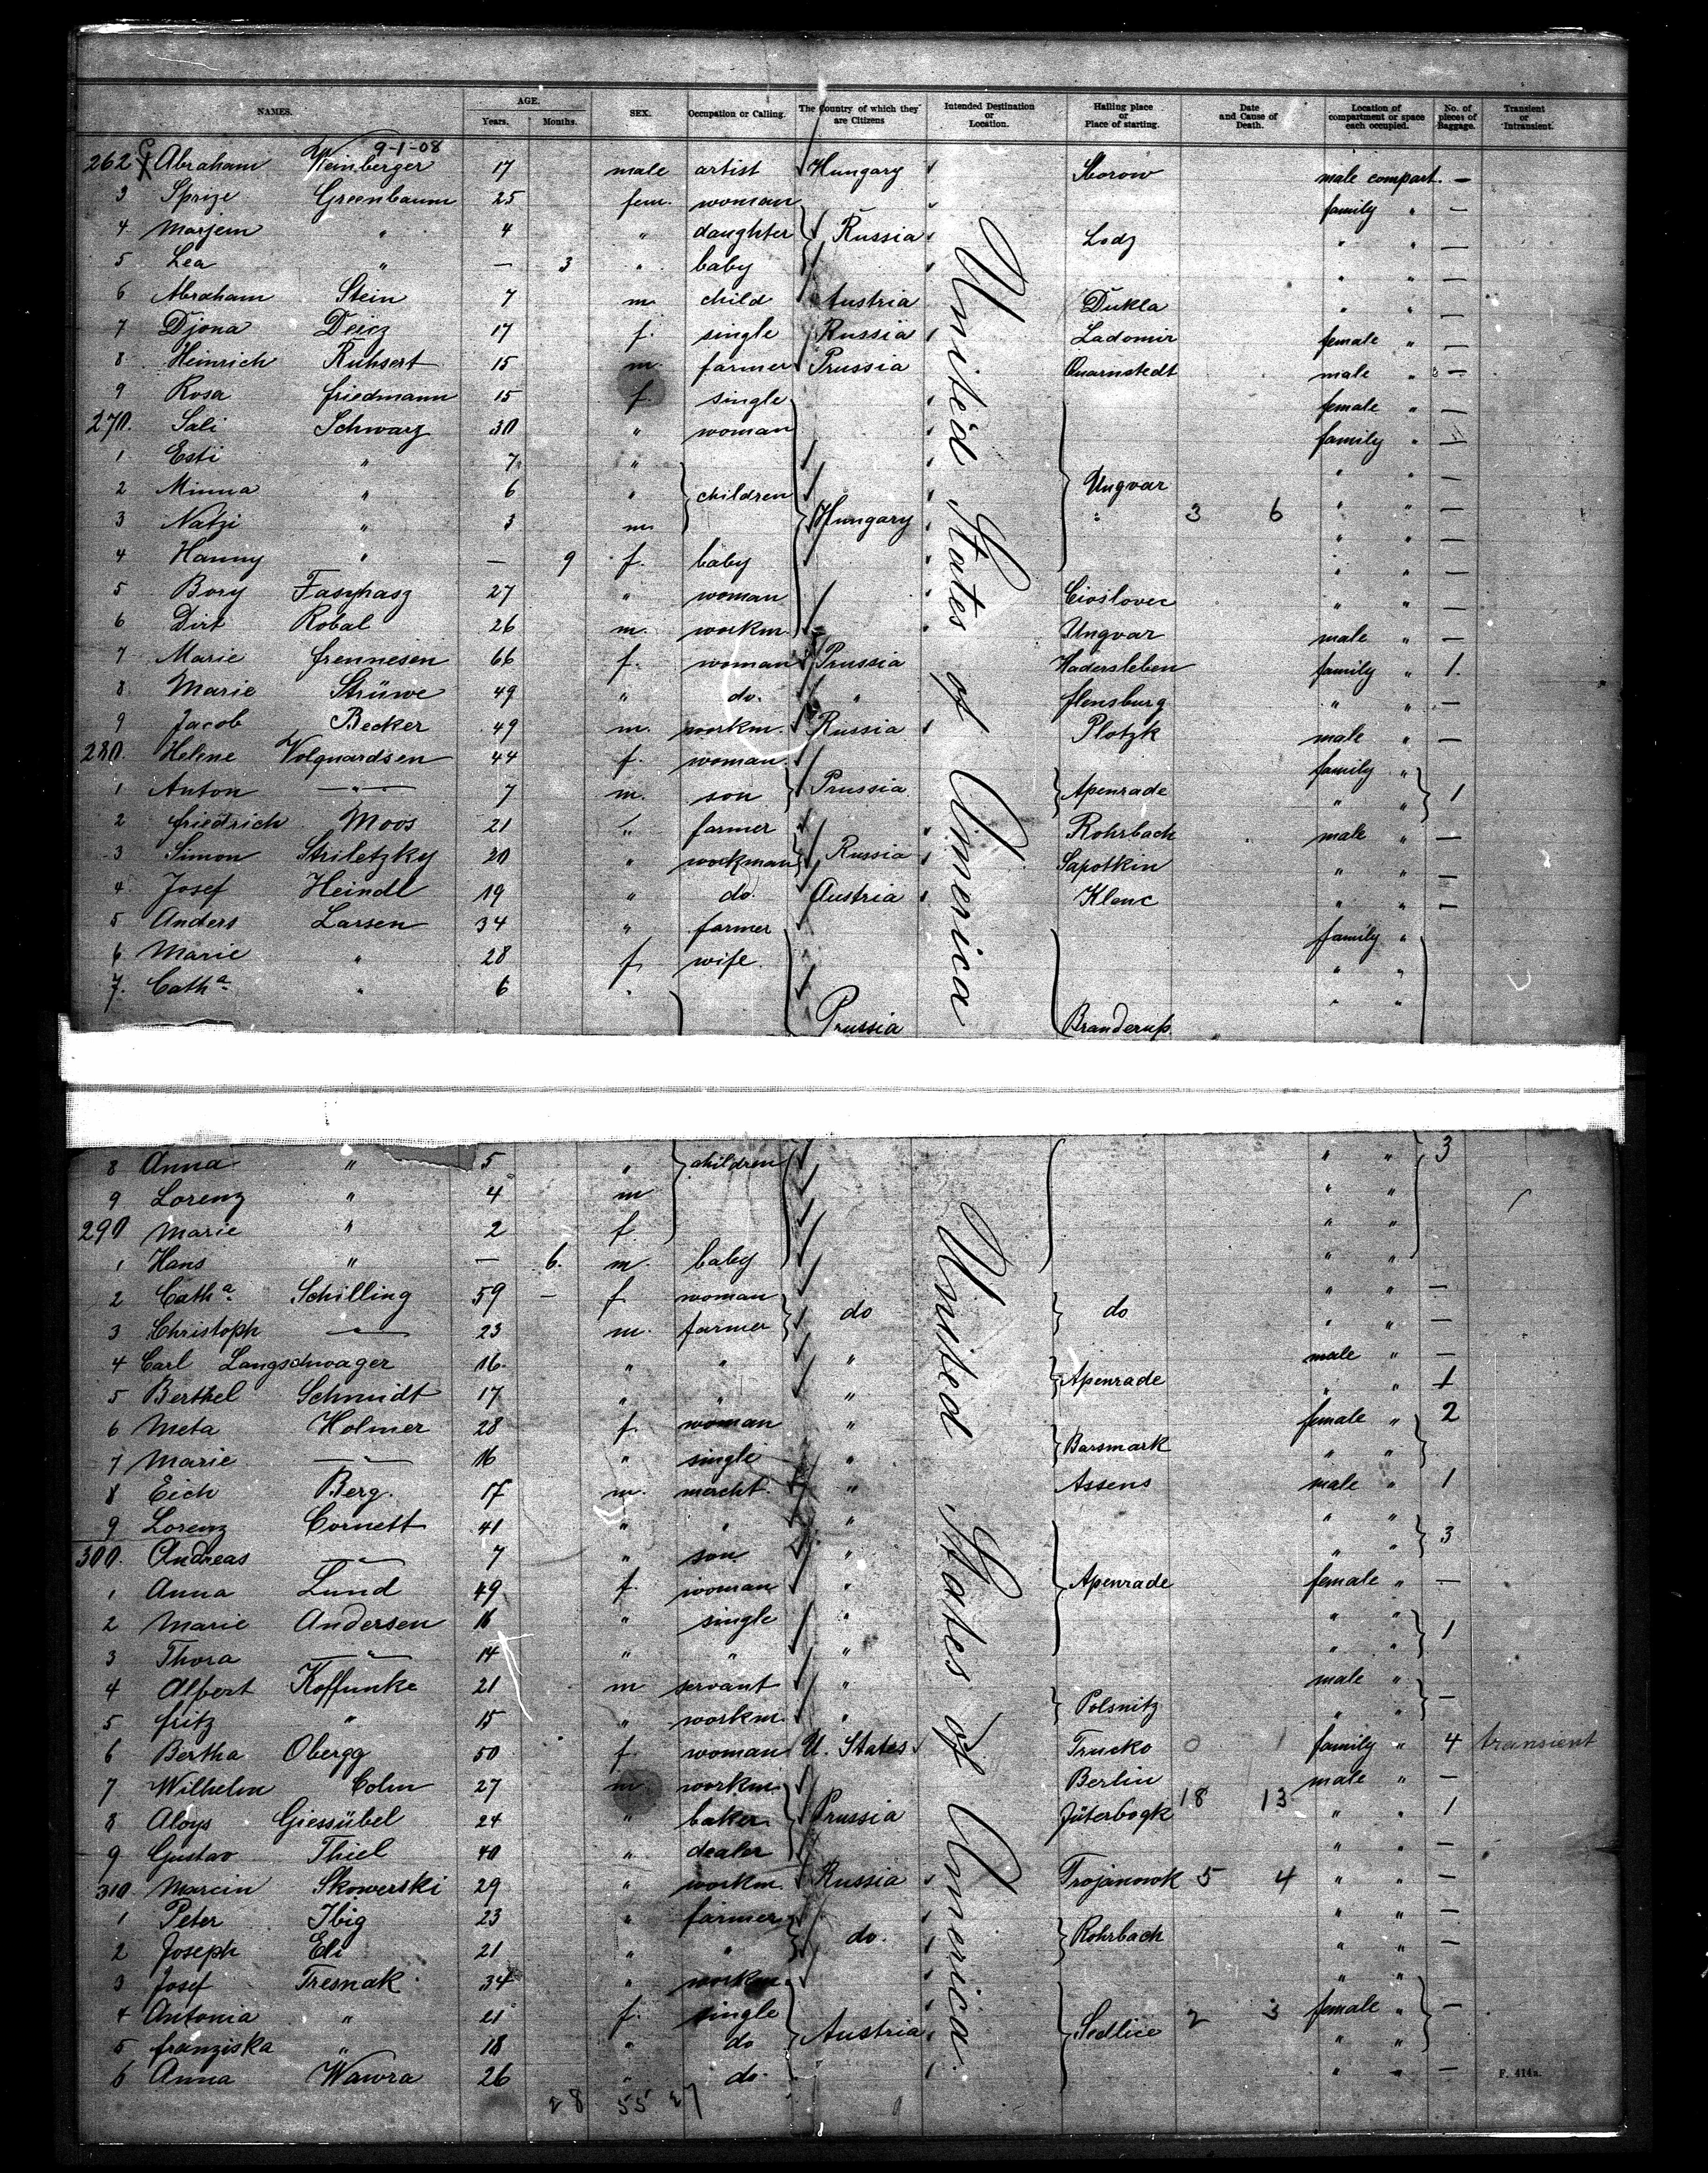 NAMES. AGE. Years. Months. SEX. Occupation or Calling. The Country of which they are Citizens Intended Destination or Location. Hailing place or Place of starting. Date and Cause of Death. Location of compartment or space each occupied. No. of pieces of Baggage. Transient or Intransient.
9-1-08
262 Abraham Weinberger 17 male artist Hungary male compart. —
3 Sprize Greenbaum 25 fem. woman family " —
4 Marjem " 4 " daughter Russia Lodz " " —
5 Lea " — 3 " baby " " —
6 Abraham Stein 7 m. child Austria Dukla " " —
7 Djona Deicz 17 f. single Russia Ladomir female " —
8 Heinrich Ruhsert 15 m. farmer Prussia Quarnstedt male " —
9 Rosa Friedmann 15 f. single female " —
270. Sali Schwarz 30 " woman family " —
1 Esti " 7 " " " —
2 Minna " 6 " children Ungvar " " —
3 Natzi " 3 m. Hungary " 3 6 " " —
4 Hanny " — 9 f. baby " " —
5 Bory 27 " woman " " —
6 Dirt Robal 26 m. workm. Ungvar male " —
7 Marie Frennesen 66 f. woman Prussia Hadersleben family " 1.
8 Marie Strüwe 49 " do. " Flensburg " " —
9 Jacob Becker 49 m. workm. Russia Plotzk male " —
280. Helene Volquardsen 44 f. woman family "
1 Anton —"— 7 m. son Prussia Apenrade " " 1
2 Friedrich Moos 21 " farmer Rohrbach male " —
3 Simon Striletzky 20 " workman Russia Sapotkin " " —
4 Josef Heindl 19 " do. Austria Klenc " " —
5 Anders Larsen 34 " farmer family "
6 Marie " 28 f. wife " "
7. Catha " 6 " " "
Prussia Branderup
United States of America
8 Anna " 5 " children " " 3
9 Lorenz " 4 m " "
290 Marie " 2 f. " "
1 Hans " — 6. m. baby " "
2 Catha Schilling 59 — f woman " " —
3 Christoph —"— 23 m. farmer do do " " —
4 Carl Langschwager 16. " " " male " —
5 Berthel Schmidt 17 " " " Apenrade " " 1
6 Meta Holmer 28 f. woman " female " 2
7 Marie —"— 16 " single " Barsmark " "
8 Eich Berg. 17 m. " Assens male " 1
9 Lorenz Cornett 41 " " " " "
300. Andreas —"— 7 " son " " " 3
1 Anna Lund 49 f. woman " Apenrade female " —
2 Marie Andersen 16 " single " " "
3 Thora —"— 14 " " " " " 1
4 Albert Koffunke 21 m servant " male "
5 Fritz " 15 " workm. " Polsnitz " " —
6 Bertha Obergg 50 f. woman U. States Trucko 0 1 family " 4 transient
7 Wilhelm Colm 27 m. workm Berlin male " —
8 Aloys Giessübel 24 " baker Prussia Jüterbogk 18 13 " " 1
9 Gustav Thiel 40 " dealer " " —
310 Marcin Skowerski 29 " workm. Russia Trojanowk 5 4 " " —
1 Peter Ibig 23 " farmer " " —
2 Joseph Eli 21 " " do. Rohrbach " " —
3 Josef Tresnak 34 " workm. " "
4 Antonia " 21 f. single 2 3 female " —
5 Franziska " 18 " do Austria Sedlice " "
6 Anna Wawra 26 " do. " " —
United States of America.
28 55 27
F. 414a.